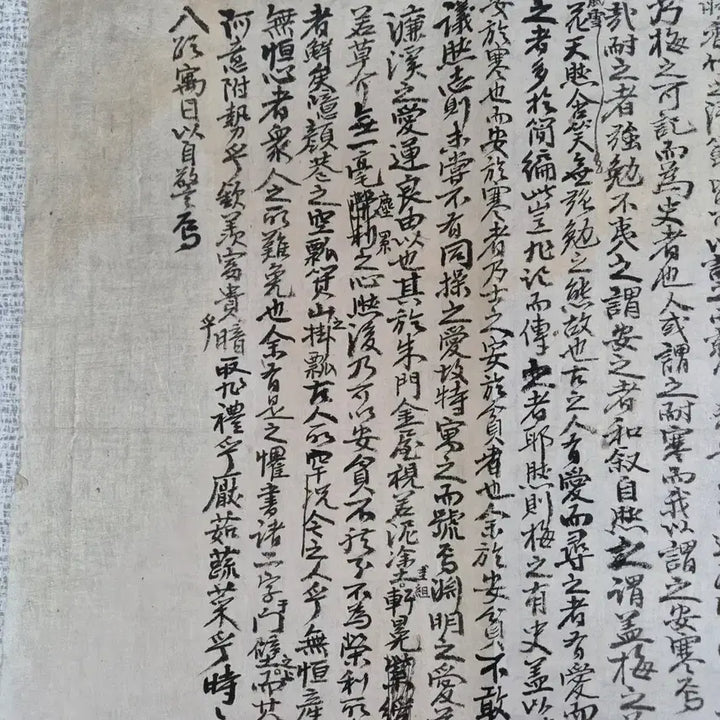 乃梅之可記而為史者也人或謂之耐寒而我以謂之安寒焉
哉耐之者强勉不夷之謂安之者和叙自然之謂盖梅之
花天然含笑無强勉之態故也古之人有愛而尋之者有愛而
之者多於簡編此豈非論而傳者耶然則梅之有史盖以
安於寒也而安於寒者乃士之安於貧者也余於安貧不敢
議然志則未嘗不有同操之愛故特寓之而號焉淵明之愛
濂溪之愛蓮良由以也其於朱門金屋視若泥塗圭組軒冕
若草介無一毫塵累之心然後乃可以安貧不然則不為榮利所
者鮮矣噫顔巷之空瓢箕山之掛瓢古人所罕况今之人乎無恒産
無恒心者衆人之所難免也余有是之懼書諸二字於壁而其
阿意附勢乎欽羡富貴乎暗取非禮乎厭茹蔬菜乎時
入於寓目以自警焉